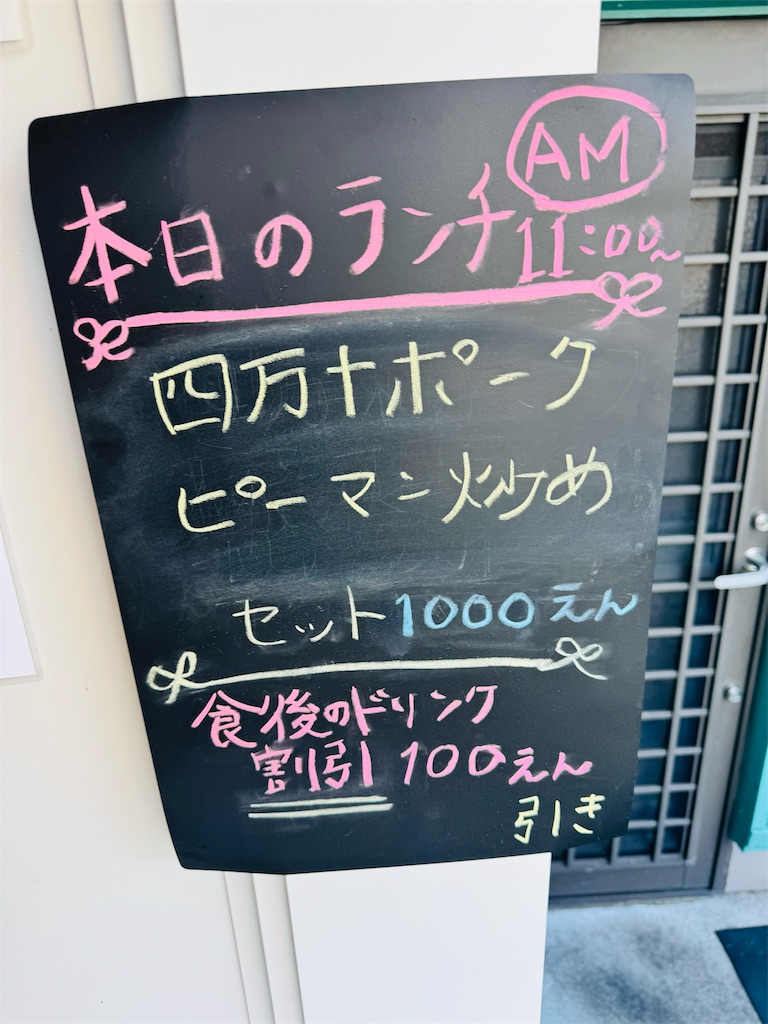 AM
本日のランチ 11:00~
四万十ポーク
ピーマン炒め
セット 1000えん
食後のドリンク
割引 100えん
引き